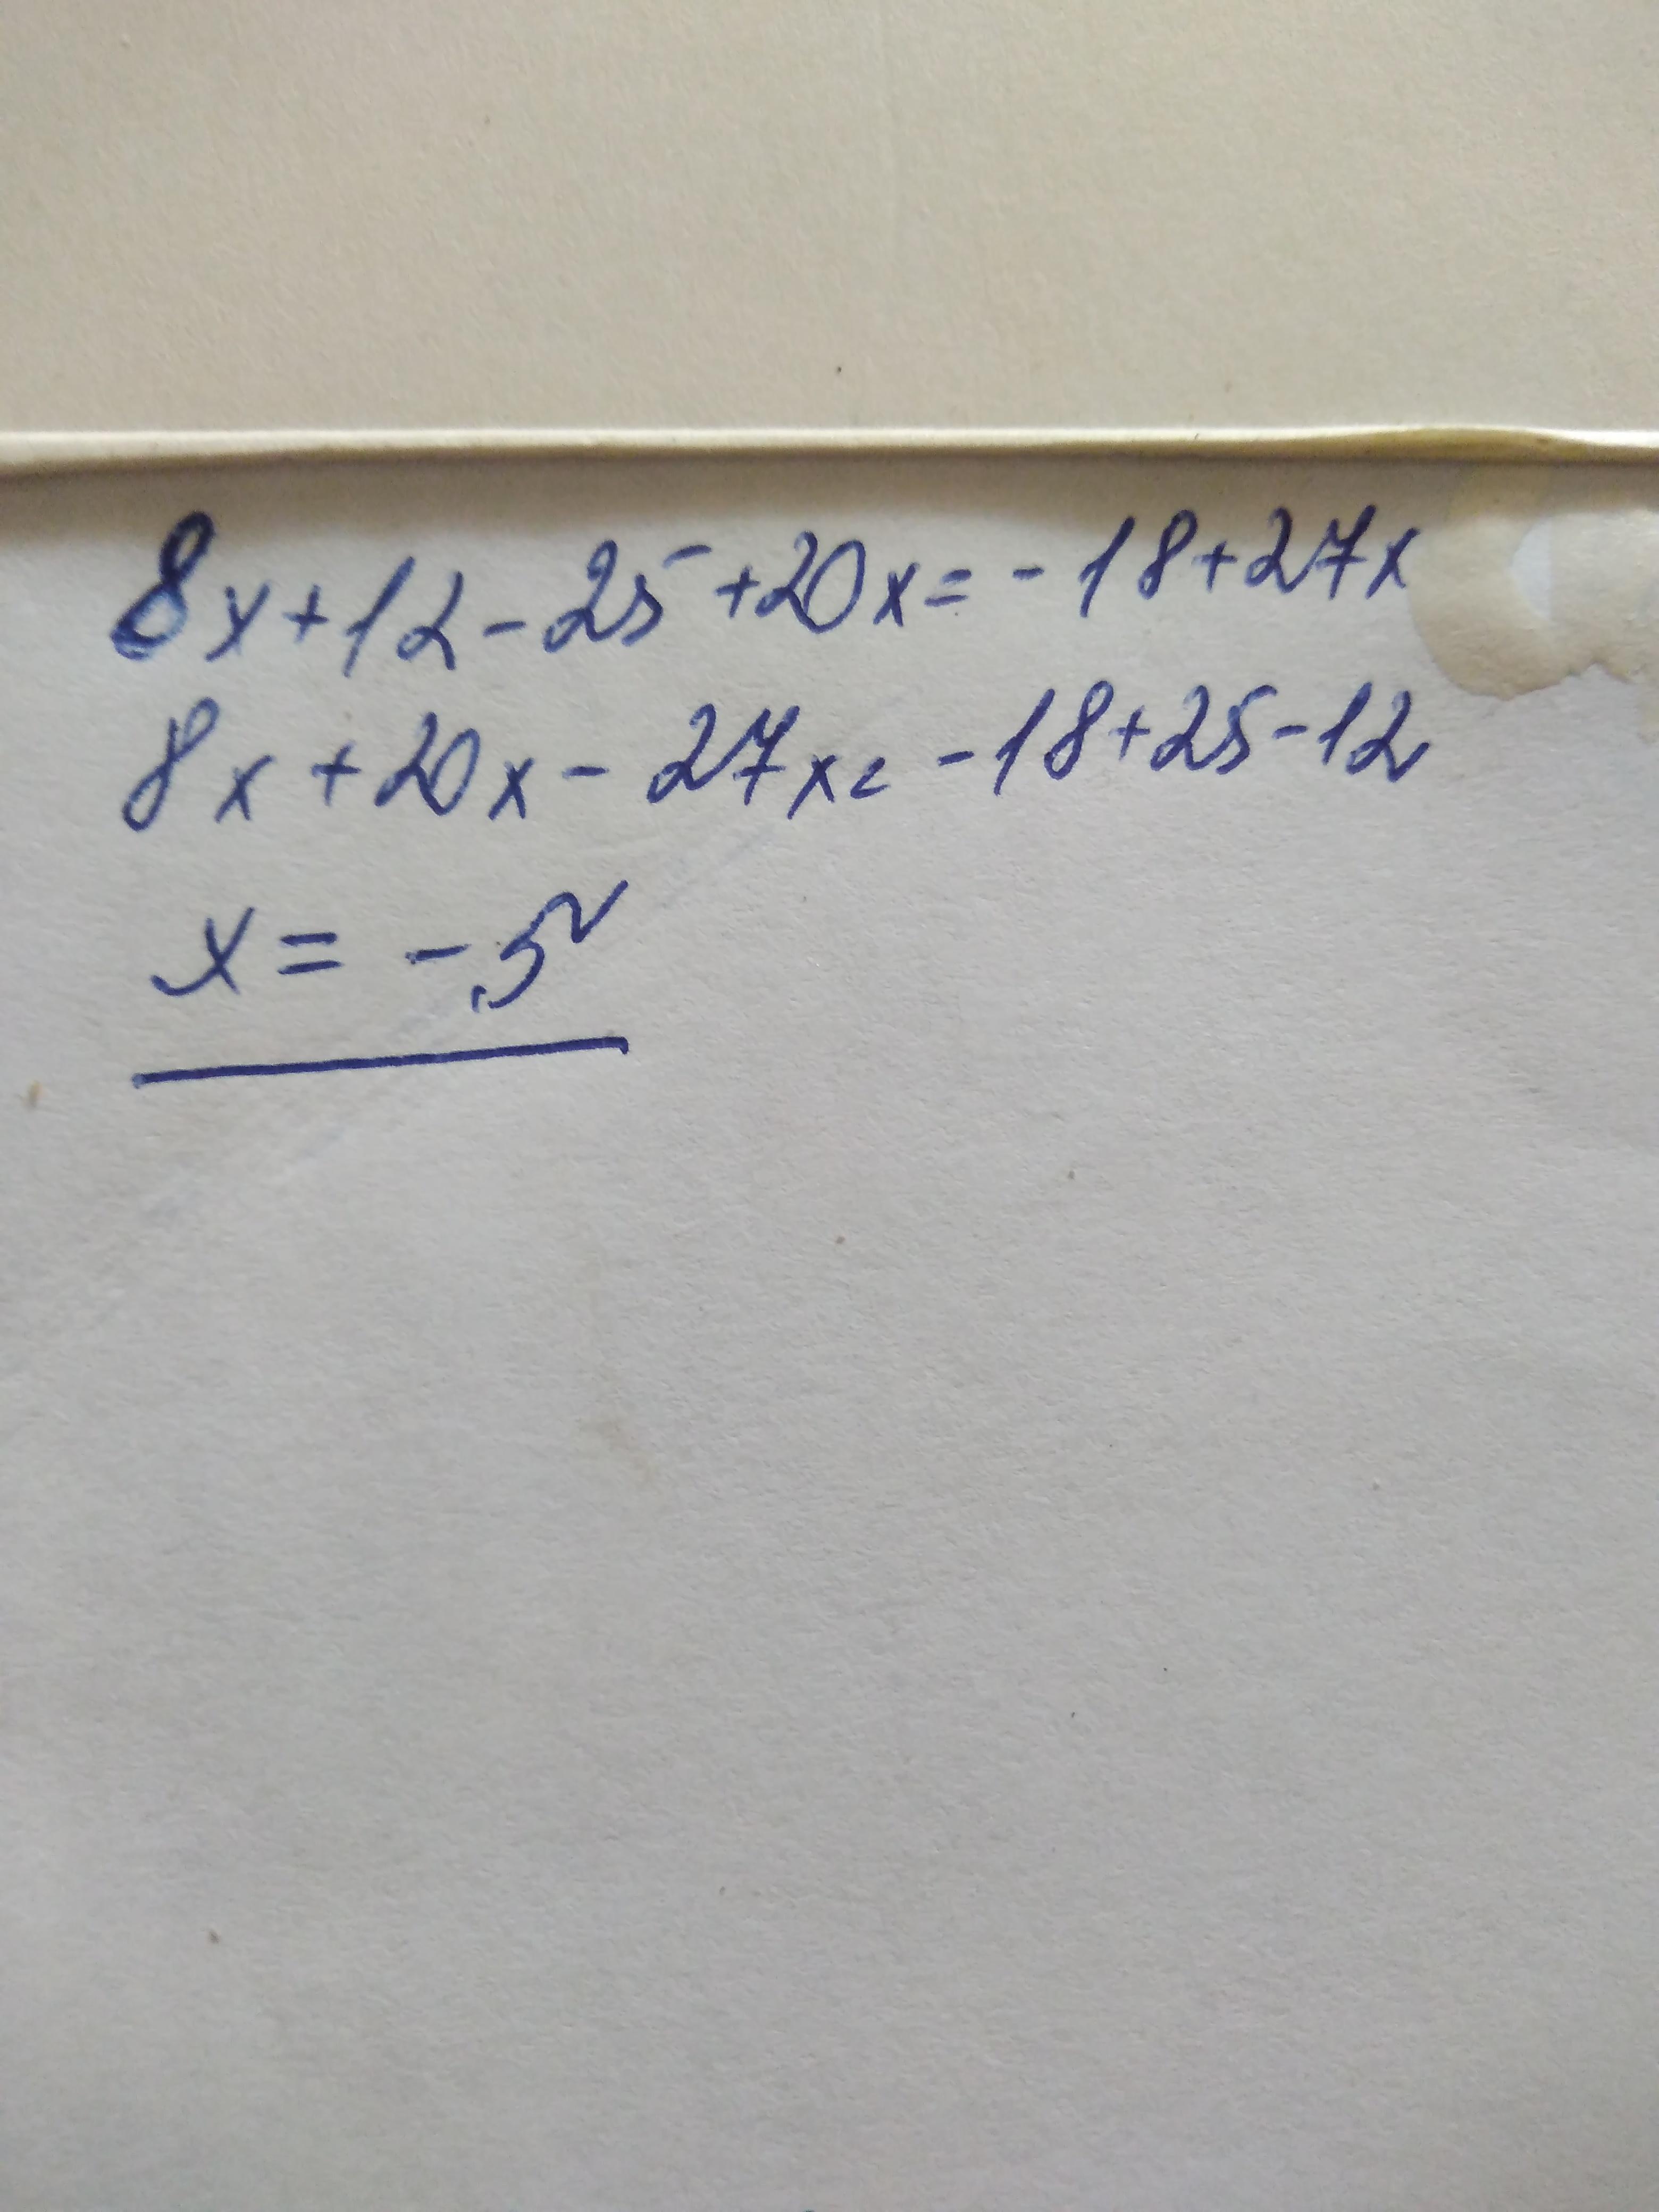 8x+12-25+20x=-18+27x
8x+20x-27x=-18+25-12
x=-5